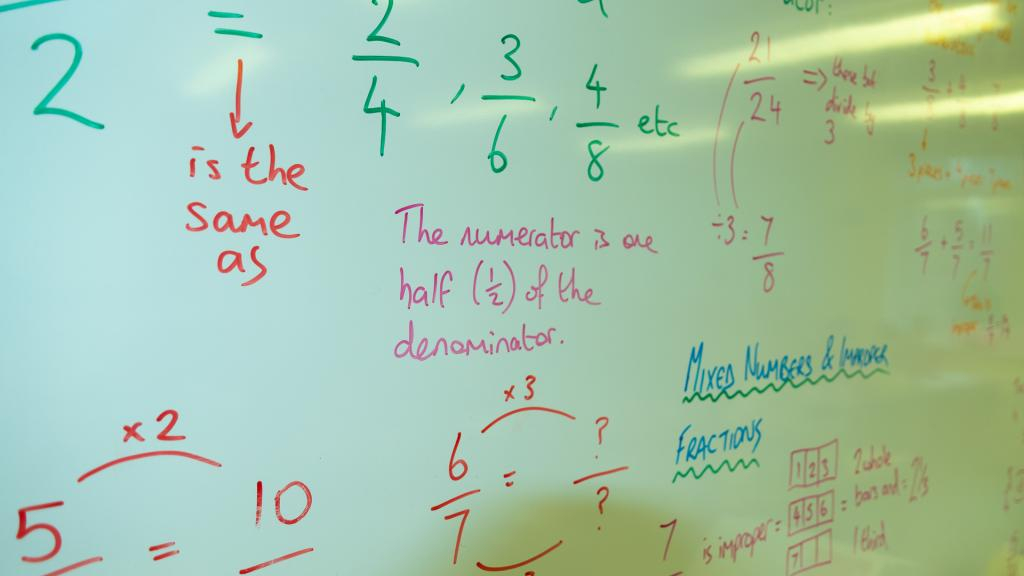 2 = 2/4 , 3/6 , 4/8 etc
is the
same
as
The numerator is one
half (1/2) of the
denominator.
21/24 =>
divide by
3
÷3 = 7/8
6/7 + 5/7 = 11/7
MIXED NUMBERS & IMPROPER
FRACTIONS
x 2
5 = 10
x 3
6/7 = ?/?
7
is improper =
1 2 3
4 5 6
7
2 whole
bars and = 2 1/3
1 third